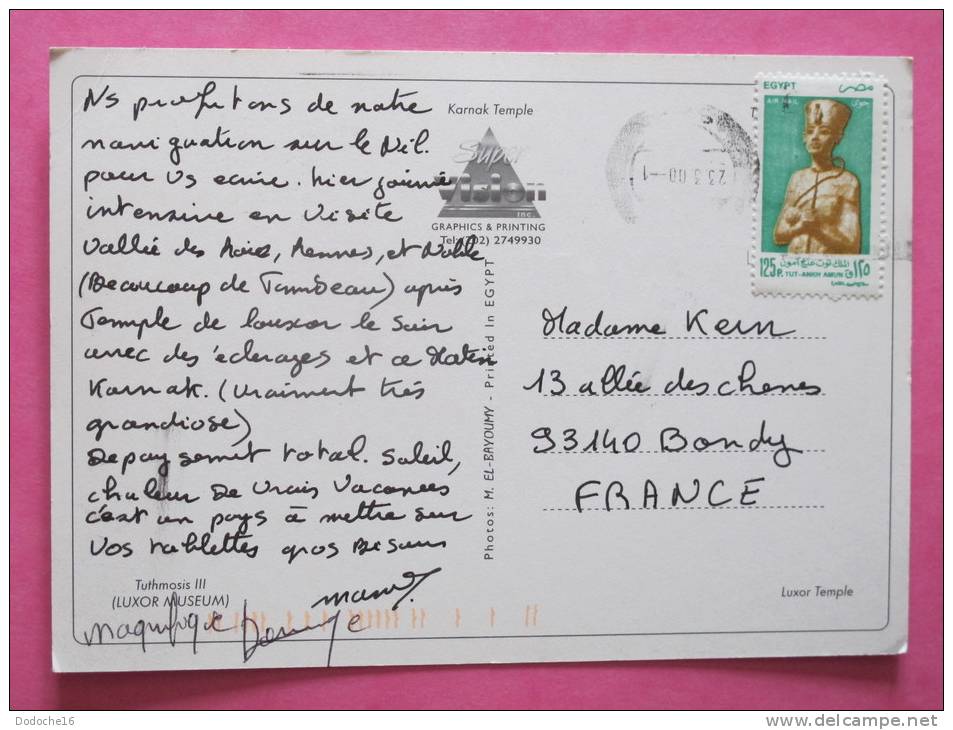 Ns profitons de notre
navigation sur le Nil.
pour Vs ecrire. hier journée
intensive en Visite
Vallée des Rois, Reines, et Noble
(Beaucoup de Tombeau) après
Temple de louxor le Soir
avec des éclerages et ce Matin
Karnak. (Vraiment très
grandiose)
Depaysement total. Soleil,
chaleur De Vrais Vacances
c'est un pays à mettre sur
Vos tablettes gros Bisous
magnifique
Tuthmosis III
(LUXOR MUSEUM)
Karnak Temple
Super
Vision
Inc.
GRAPHICS & PRINTING
Tel: (202) 2749930
Photos: M. EL-BAYOUMY - Printed In EGYPT
23 3 00 -1
EGYPT مصر
AIR MAIL
الملك توت عنخ آمون
125 P. TUT-ANKH AMUN ١٢٥
Madame Kern
13 allée des chenes
93140 Bondy
FRANCE
Luxor Temple
Dodoche16
www.delcampe.net